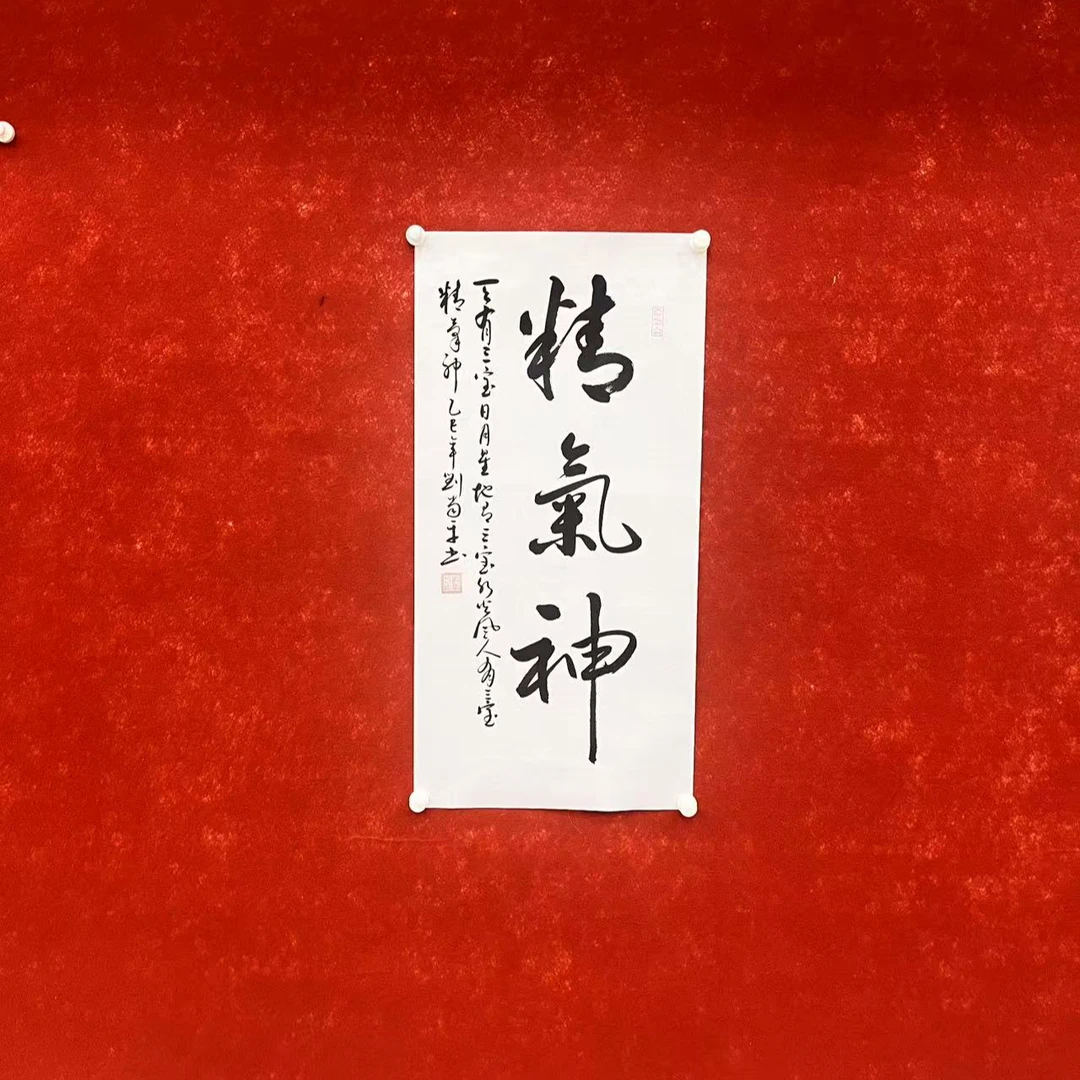 精氣神
天有三宝日月星地有三宝水火风人有三宝
精气神乙巳年刘尚平书